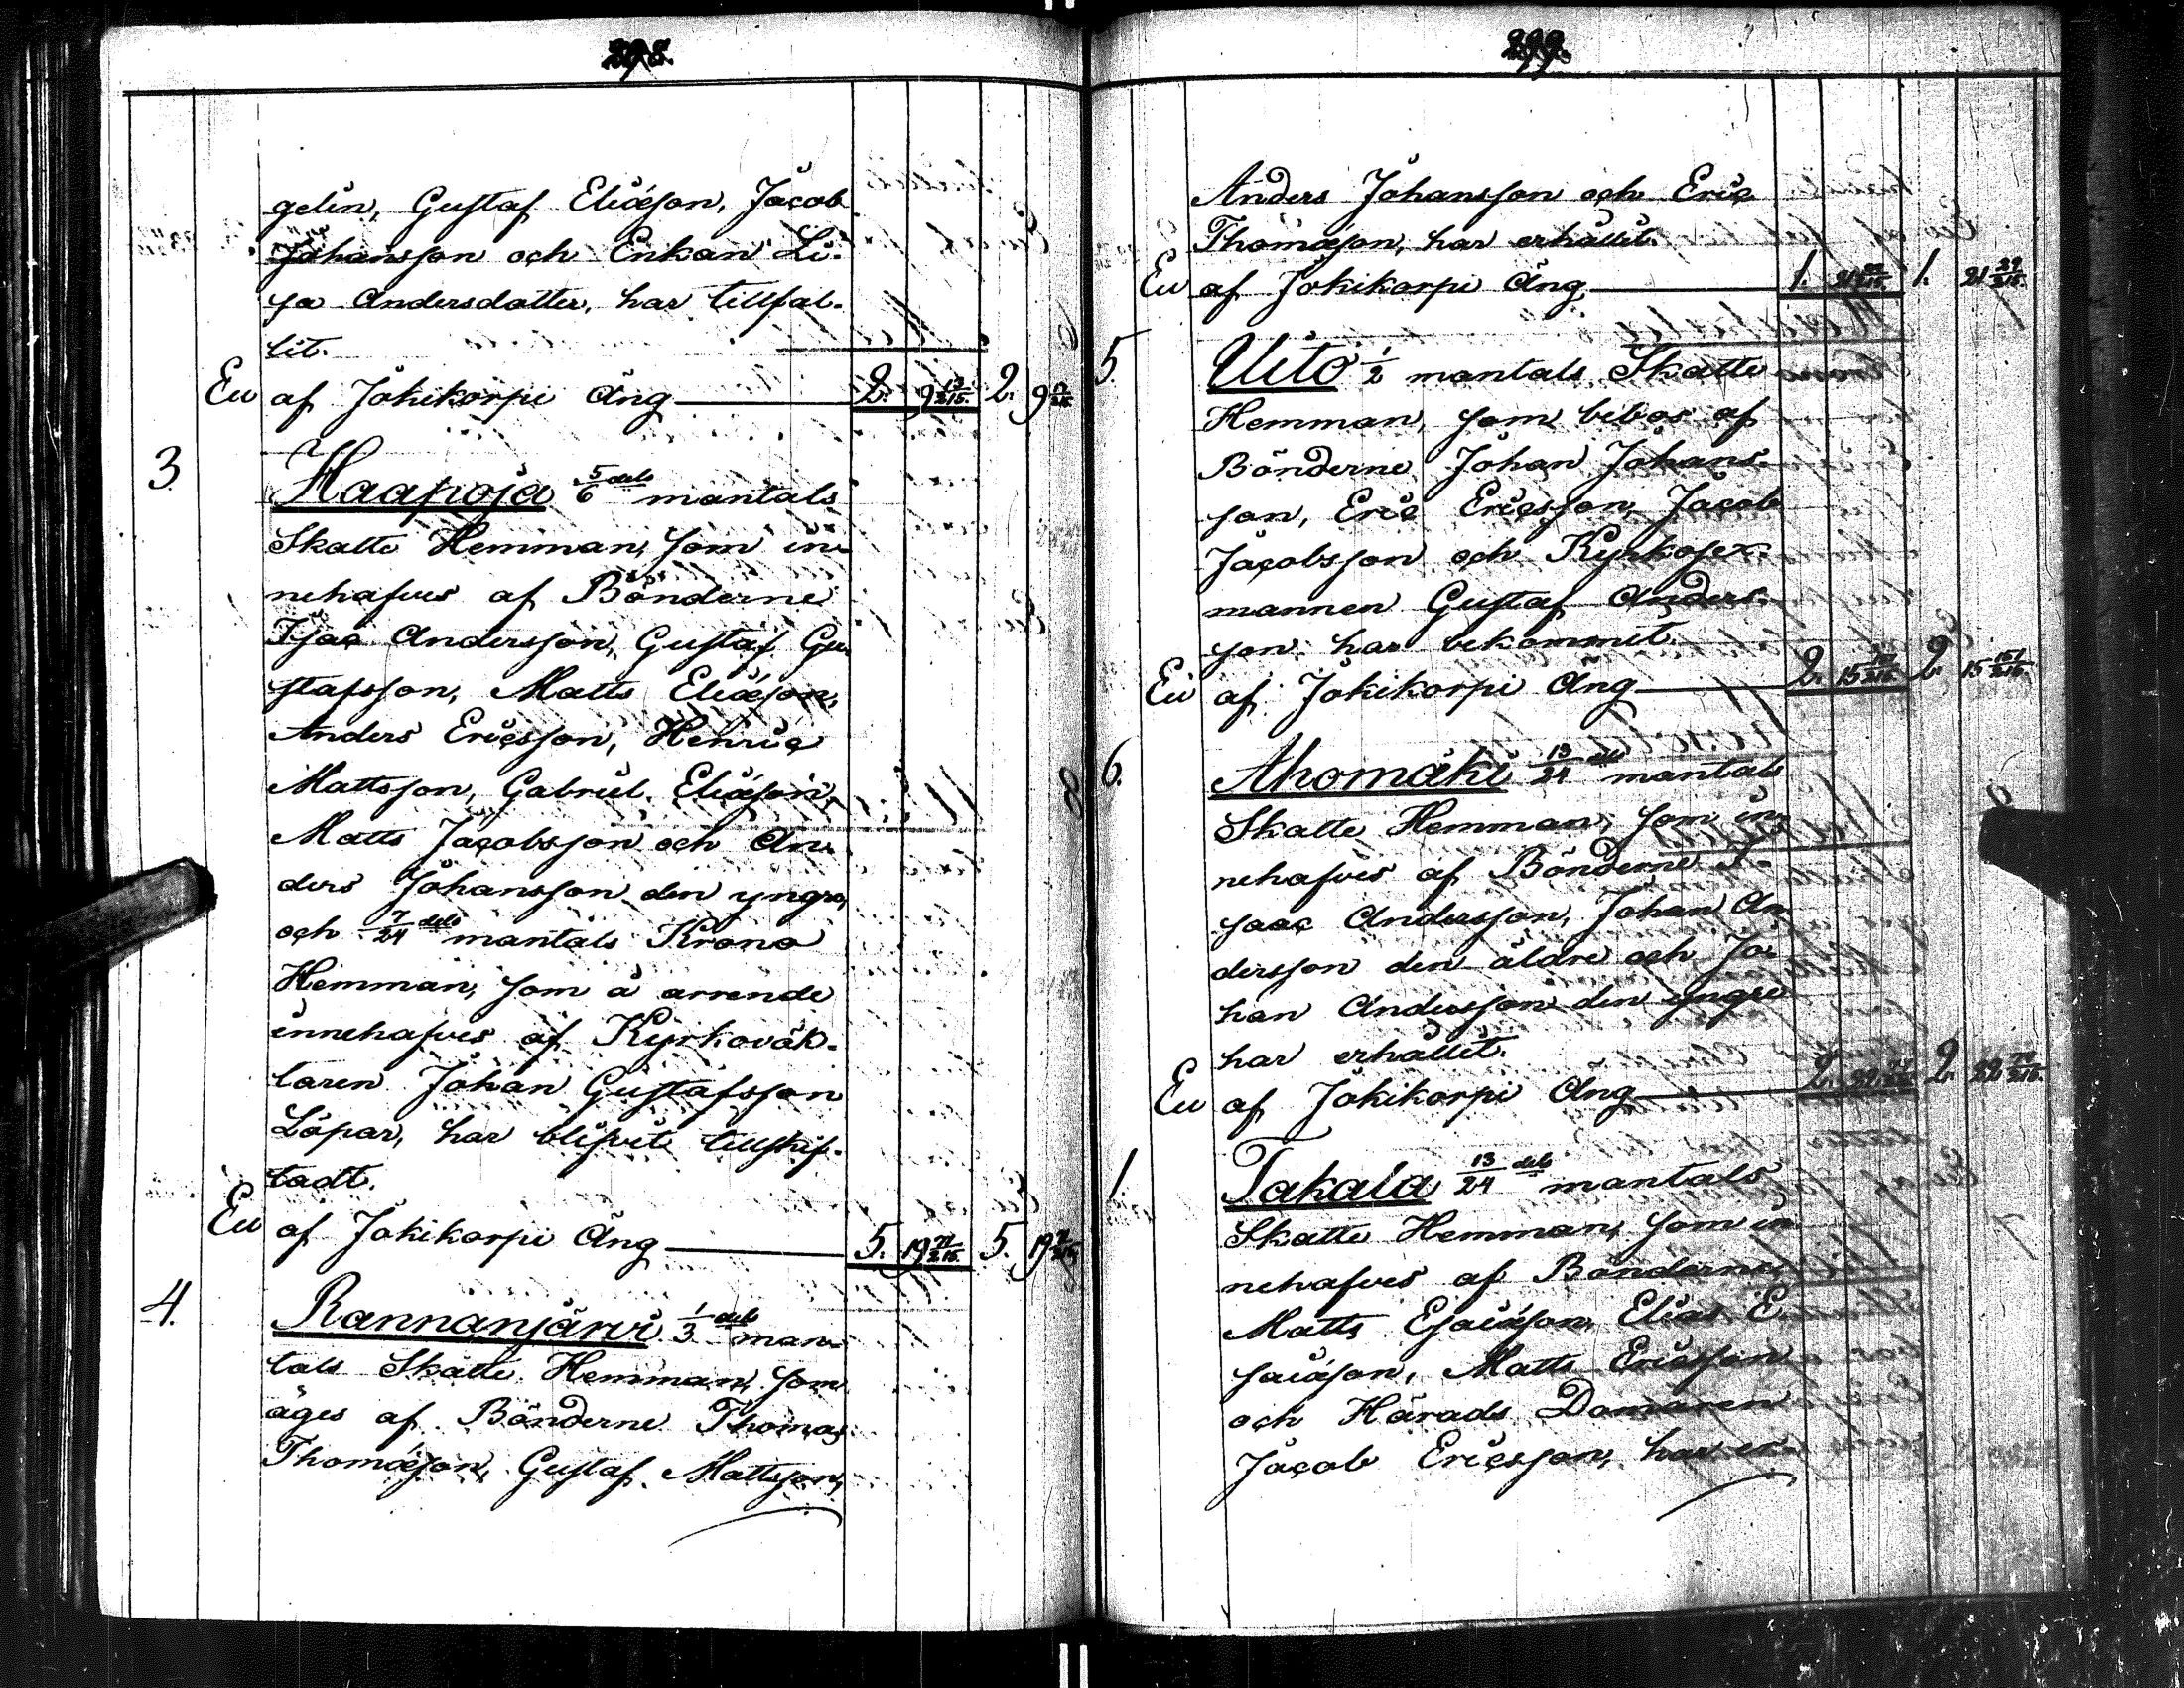 298.
gelin, Gustaf Eliæson, Jacob
Johansson och Enkan Li-
sa Andersdotter, har tillfal-
lit.
Eu af Jokikorpi Äng 2. 9 13/216. 2. 9
3. Haapoja 5/6 dels mantals
Skatte Hemman, som in-
nehafves af Bönderne
Isac Andersson, Gustaf Gu-
stafsson, Matts Eliæson,
Anders Ericsson, Henric
Mattsson, Gabriel Eliæson,
Matts Jacobsson och An-
ders Johansson den yngre,
och 7/24 dels mantals Krono
Hemman, som å arrende
innehafves af Kyrkoväk-
taren Johan Gustafsson
Löpar, har blifvit tillskif-
tadt.
Eu af Jokikorpi Äng 5. 19 71/216. 5. 19
4. Rannanjärvi 1/3 dels man-
tals Skatte Hemman, som
äges af Bönderne Thomas
Thomæson, Gustaf Mattsson,
299.
Anders Johansson och Eric
Thomæson, har erhållit.
Eu af Jokikorpi Äng 1. 1. 21 29/216.
5. Uito 1/2 mantals Skatte
Hemman, som bebos af
Bönderne Johan Johans-
son, Eric Ericsson, Jacob
Jacobsson och Kyrkosex-
mannen Gustaf Anders-
son, har bekommit.
Eu af Jokikorpi Äng 2. 15 151/216. 2. 15 151/216.
6. Ahomäki 13/24 dels mantals
Skatte Hemman, som in-
nehafves af Bönderne I-
saac Andersson, Johan An-
dersson den äldre och Jo-
han Andersson den yngre
har erhållit.
Eu af Jokikorpi Äng 2. 2. 22
1. Takala 13/24 dels mantals
Skatte Hemman, som in-
nehafves af Bönderne
Matts Esaiæson, Elias E-
saiæson, Matts Ericsson
och Härads Domaren
Jacob Ericsson, har er-